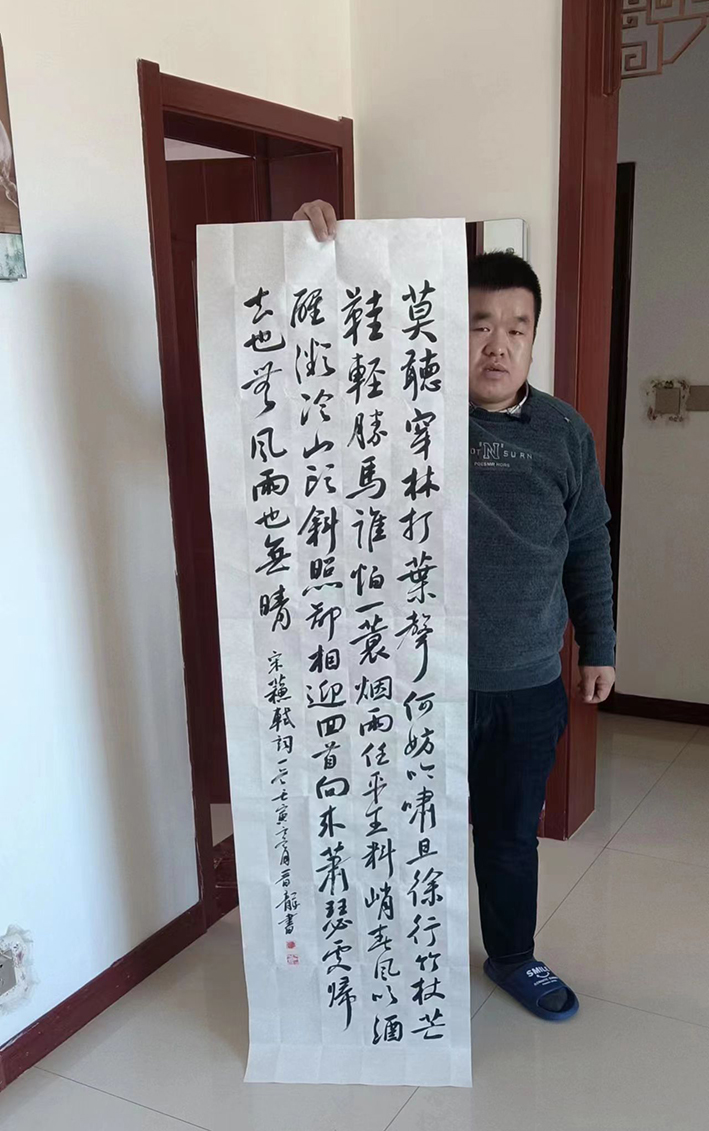 莫聽穿林打葉聲何妨吟嘯且徐行竹杖芒
鞋輕勝馬誰怕一蓑烟雨任平生料峭春風吹酒
醒微冷山頭斜照却相迎回首向來蕭瑟處歸
去也無風雨也無晴
宋蘇軾詞一首壬寅月書
N
SURN